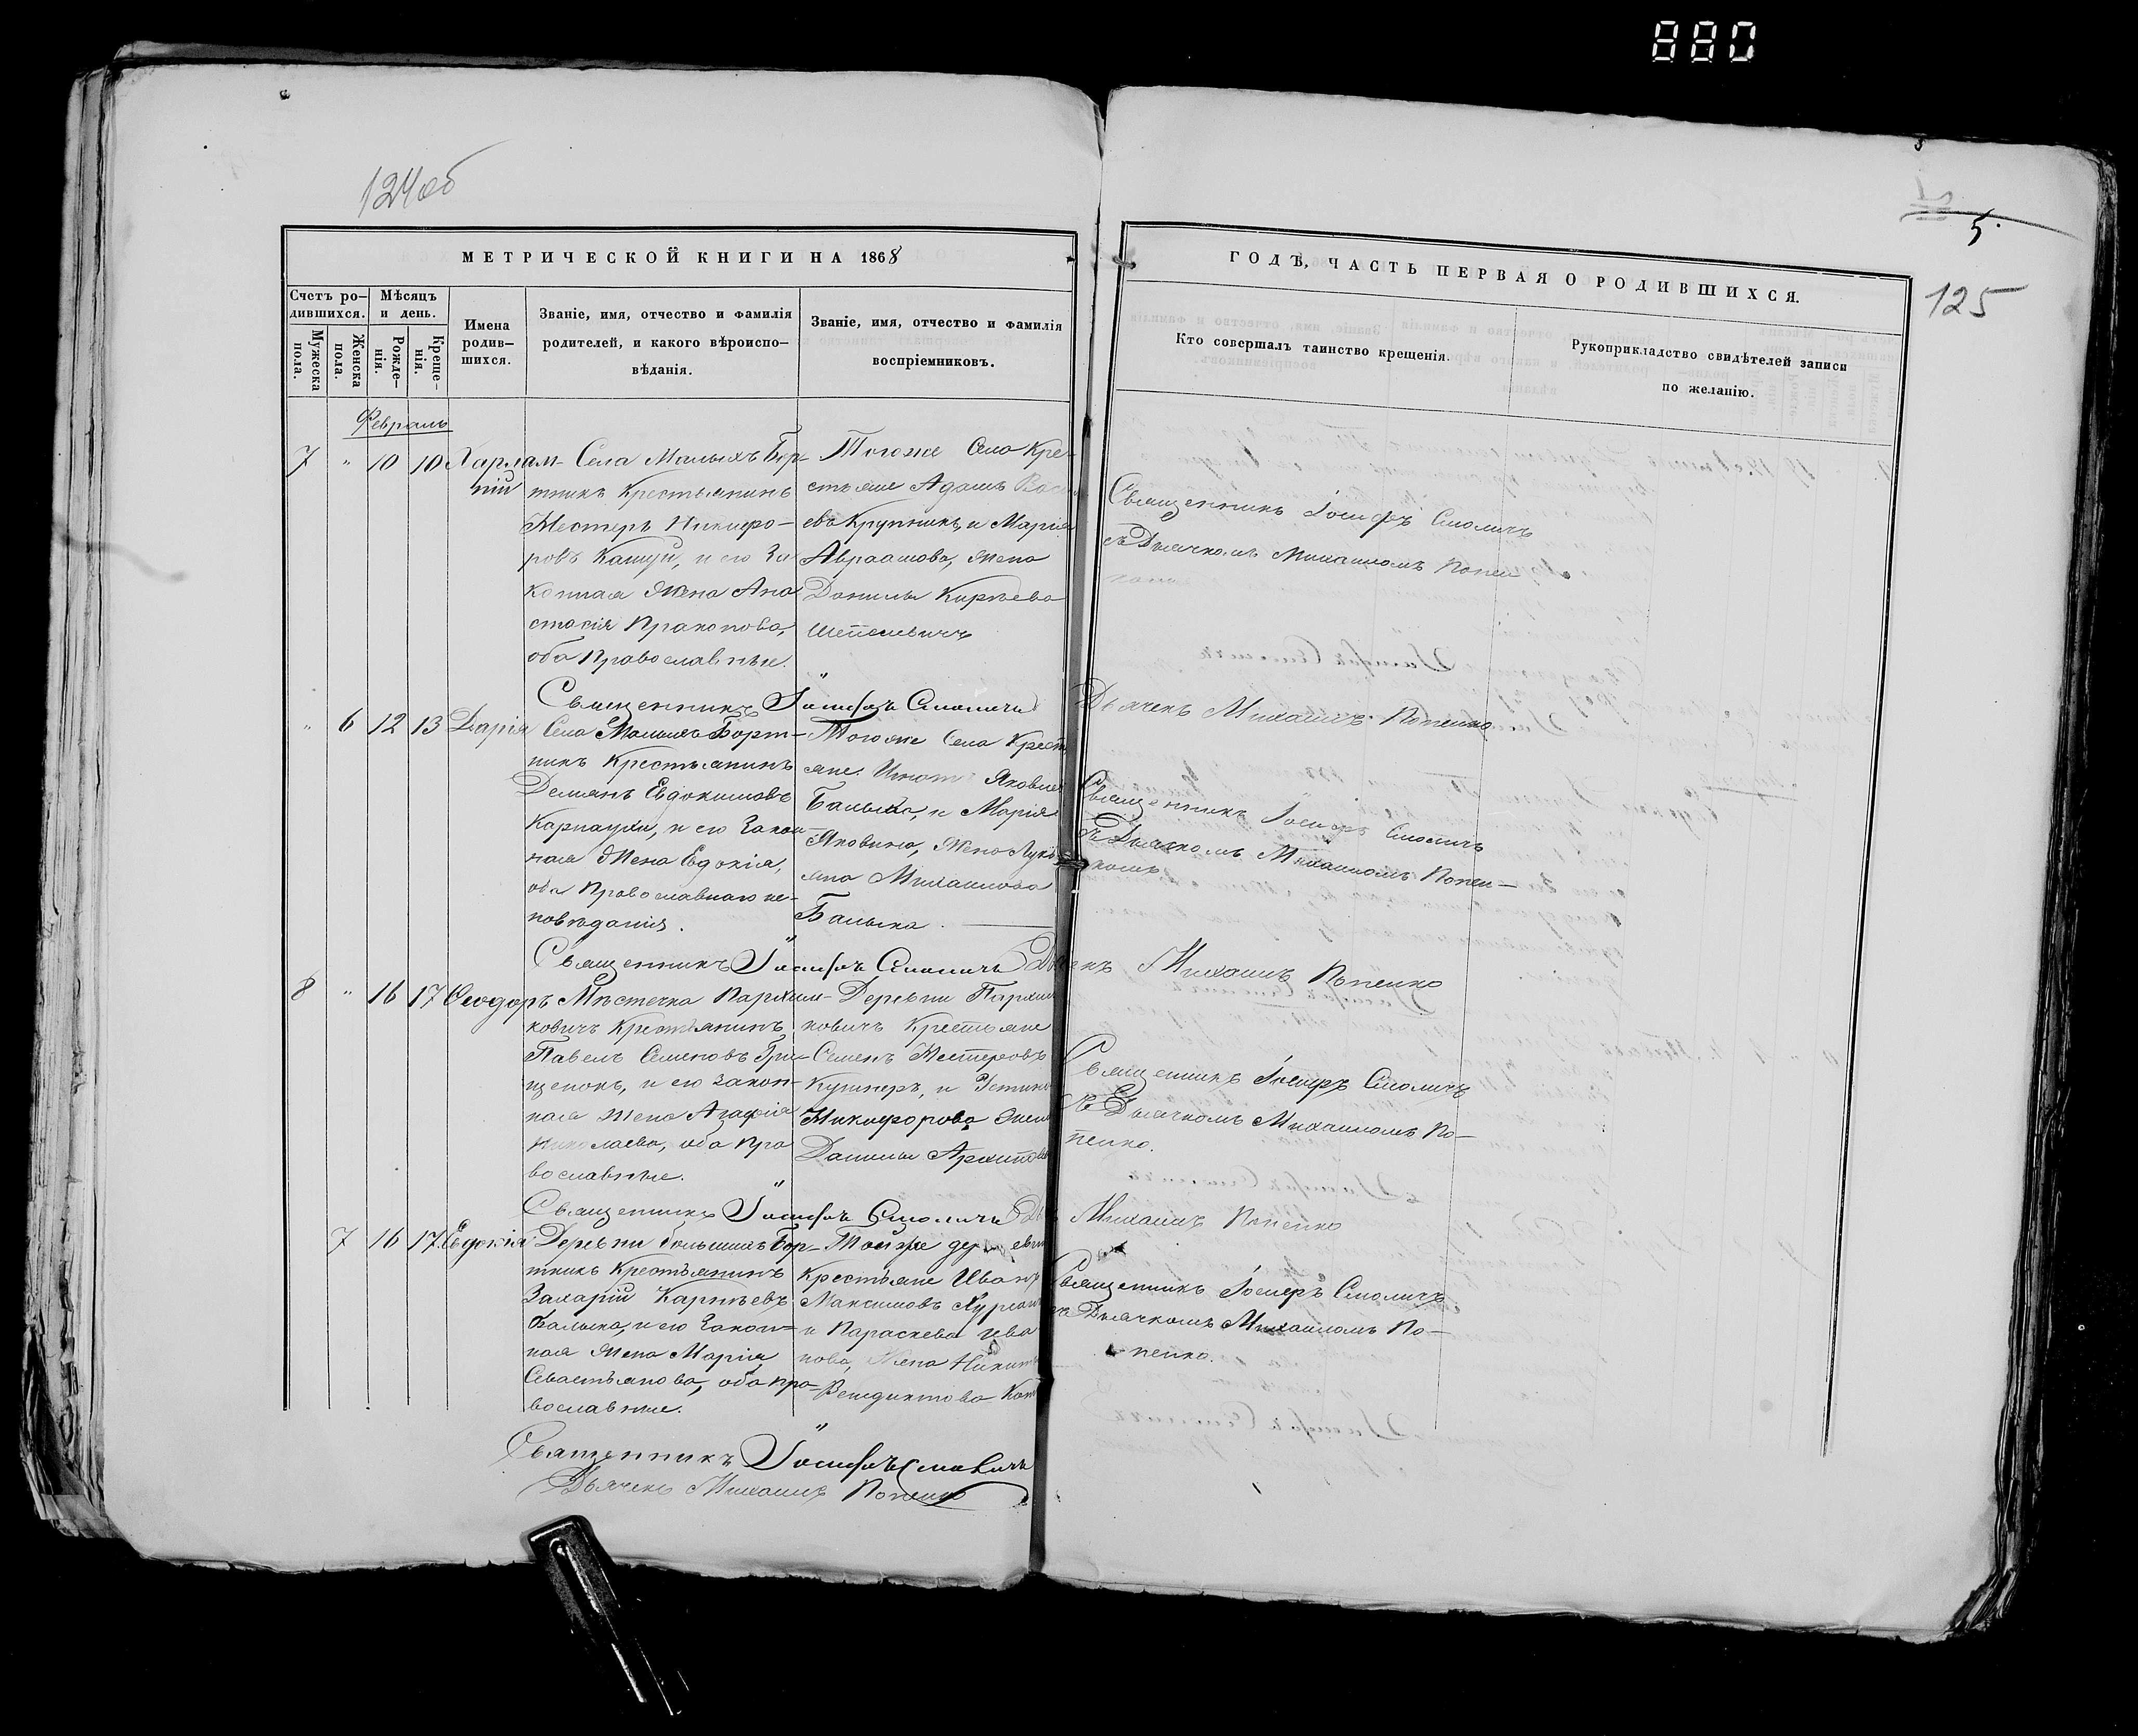 880
124об
5.
125
МЕТРИЧЕСКОЙ КНИГИ НА 1868
ГОДЪ, ЧАСТЬ ПЕРВАЯ О РОДИВШИХСЯ.
Счетъ ро-
дившихся.
Мужеска
пола.
Женска
пола.
Мѣсяцъ
и день.
Рожде-
нія.
Креще-
нія.
Имена
родив-
шихся.
Званіе, имя, отчество и фамилія
родителей, и какого вѣроиспо-
вѣданія.
Званіе, имя, отчество и фамилія
воспріемниковъ.
Кто совершалъ таинство крещенія.
Рукоприкладство свидѣтелей записи
по желанію.
Февраль
7 " 10 10 Харлам-
пій
Села Малыхъ Бор-
тникъ Крестьянинъ
Нестеръ Никифо-
ровъ и его За-
конная Жена Ана
стасія Пракопова,
оба Православные.
Тогоже Села Кре-
стьяне Адамъ
евъ Крупникъ, и Марія
Авраамова, жена
Данилы Кирѣева
Священникъ Іосифъ Смоличъ
съ Дьячкомъ Михаиломъ Попен
Священникъ Іосифъ Смоличъ
Дьячекъ Михаилъ Попенко
" 6 12 13 Дарія
Села Малыхъ Борт-
никъ Крестьянинъ
Демьянъ Евдокимовъ
Карпачъ, и его Закон-
ная Жена Евдокія,
оба Православнаго ис-
повѣданія.
Тогоже Села Крест
яне Яковлев
Балыка, и Марія
Яковина, Жена Лукь
яна Михаилова
Балыка.
Священникъ Іосифъ Смоличъ
съ Дьячкомъ Михаиломъ Попен-
комъ
Священникъ Іосифъ Смоличъ Дьячекъ Михаилъ Попенко
8 " 16 17 Ѳеодоръ
Мѣстечка Пархим-
ковичъ Крестьянинъ
Павелъ Семеновъ Гри-
щенокъ, и его Закон-
ная жена Агафія
Николаева, оба Пра
вославные.
Деревни Пархим
ковичъ Крестьяне
Семенъ Нестеровъ
Кушнеръ, и Устинья
Никифорова жена
Данилы
Священникъ Іосифъ Смоличъ
съ Дьячкомъ Михаиломъ По-
пенко.
Священникъ Іосифъ Смоличъ
Михаилъ Попенко
7 16 17 Евдокія
Деревни большихъ Бор-
тникъ Крестьянинъ
Захарій Карпѣевъ
Балыка, и его Закон-
ная Жена Марія
Севастьянова, оба пра-
вославные.
Тойже деревни
Крестьяне Иванъ
Максимовъ
и Параскева Ива
нова, Жена Никиты
Венедиктова
Священникъ Іосифъ Смоличъ
съ Дьячкомъ Михаиломъ По-
пенко.
Священникъ Іосифъ Смоличъ
Дьячекъ Михаилъ Попенко